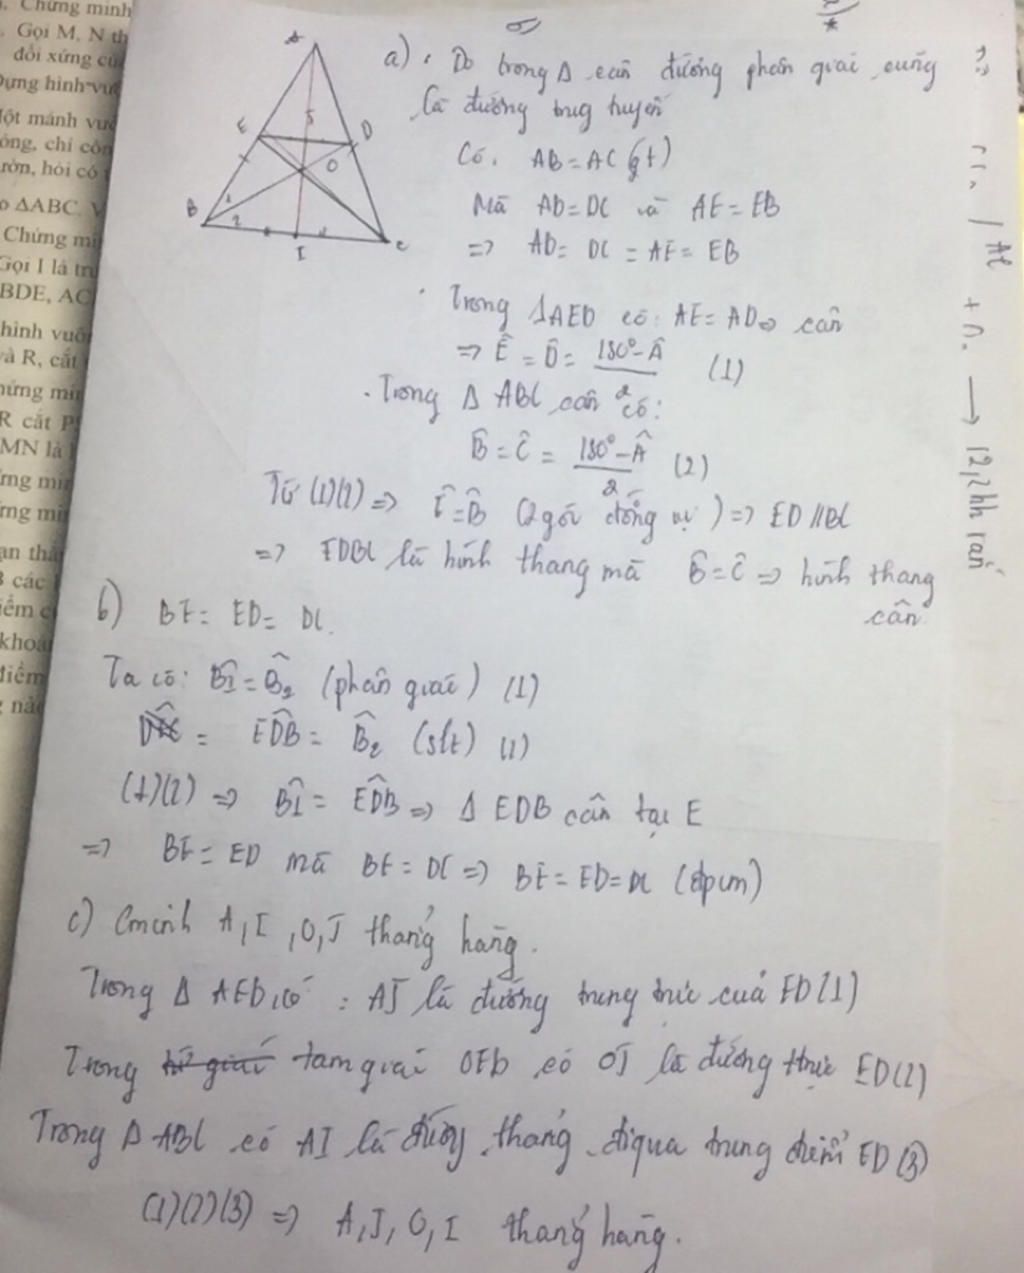 . Chứng minh
. Gọi M, N th
đối xứng củ
Dựng hình vu
Một mảnh vư
ông, chỉ còn
rờn, hỏi có
o ΔABC. V
Chứng mi
Gọi I là tru
BDE, AC
hình vuôn
và R, cắt
hứng min
R cắt P
MN là
ứng min
an thẳ
B các
iểm c
khoả
điểm
g nào
A
E
D
J
O
B
1
2
I
C
a) . Do trong Δ cân đường phân giác cũng
là đường trug tuyến
Có. AB = AC (gt)
Mà AD = DC và AE = EB
=> AD = DC = AE = EB
. Trong ΔAED có: AE = AD => cân
=> Ê = D̂ = 180° - Â / 2 (1)
. Trong Δ ABC cân có:
B̂ = Ĉ = 180° - Â / 2 (2)
Từ (1)(2) => Ê = B̂ (2 góc đồng vị) => ED // BC
=> EDBC là hình thang mà B̂ = Ĉ => hình thang
cân
b) BE = ED = DC.
Ta có: B̂1 = B̂2 (phân giác) (1)
= EDB = B̂2 (slt) (2)
(1)(2) => B̂1 = EDB => Δ EDB cân tại E
=> BE = ED mà BE = DC => BE = ED = DC (đpcm)
c) Cminh A, I, O, J thẳng hàng.
Trong Δ AED, có : AJ là đường trung trực của ED (1)
Trong tam giác OED có OJ là đường ttrực ED (2)
Trong Δ ABC có AI là đường thẳng đi qua trung điểm ED (3)
(1)(2)(3) => A, J, O, I thẳng hàng.